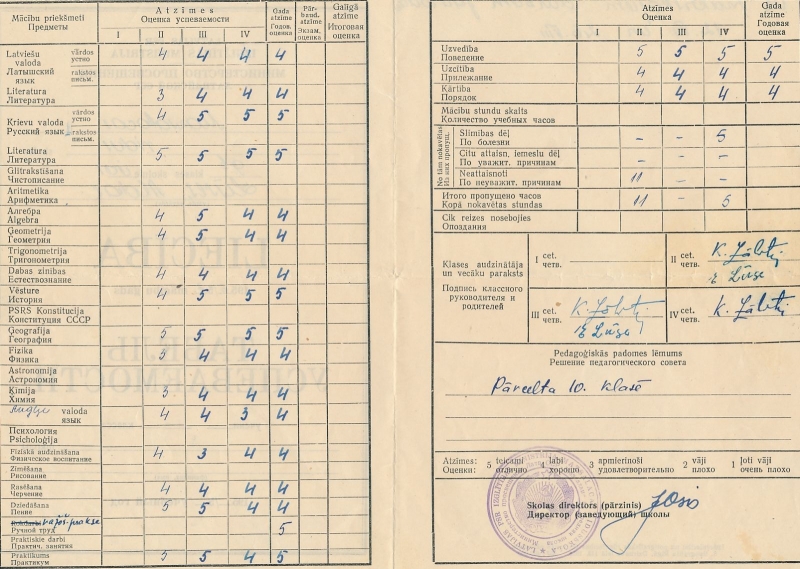 Mācību priekšmeti
Предметы
Atzīmes
Оценка успеваемости
I II III IV
Gada atzīme
Годов. оценка
Pārbaud. atzīme
Экзам. оценка
Galīgā atzīme
Итоговая оценка
Latviešu valoda vārdos 4 4 4 4
Латышский язык устно
rakstos
письм.
Literatura 3 4 4 4
Литература
Krievu valoda vārdos 4 5 5 5
Русский язык устно
rakstos
письм.
Literatura 5 5 5 5
Литература
Glītrakstīšana
Чистописание
Aritmetika
Арифметика
Алгебра 4 5 4 4
Algebra
Ģeometrija 4 5 4 4
Геометрия
Trigonometrija
Тригонометрия
Dabas zinības 4 4 4 4
Естествознание
Vēsture 4 5 5 5
История
PSRS Konstitūcija
Конституция СССР
Ģeografija 5 5 5 5
География
Fizika 5 4 4 4
Физика
Astronomija
Астрономия
Ķīmija 3 4 4 4
Химия
valoda 4 4 3 4
язык
Психология
Psicholoģija
Fiziskā audzināšana 4 3 4 4
Физическое воспитание
Zīmēšana
Рисование
Rasēšana 4 4 4 4
Черчение
Dziedāšana 5 5 4 4
Пение
ražoš. prakse 5
Ручной труд
Praktiskie darbi
Практич. занятия
Praktikums 5 5 4 5
Практикум
Atzīmes
Оценка
I II III IV
Gada atzīme
Годов. оценка
Uzvedība 5 5 5 5
Поведение
Uzcītība 4 4 4 4
Прилежание
Kārtība 4 4 4 4
Порядок
Mācību stundu skaits
Количество учебных часов
No tām nokavētas
Из них пропущ.
Slimības dēļ - - 5
По болезни
Citu attaisn. iemeslu dēļ - - -
По уважит. причинам
Neattaisnoti 11 - -
По неуважит. причинам
Итого пропущено часов 11 - 5
Kopā nokavētas stundas
Cik reizes nosebojies
Опоздания
Klases audzinātāja un vecāku paraksts
Подпись классного руководителя и родителей
I cet. четв.
II cet. четв.
III cet. четв.
IV cet. четв.
Pedagoģiskās padomes lēmums
Решение педагогического совета
Pārcelta 10. klasē
Atzīmes: 5 teicami 4 labi 3 apmierinoši 2 vāji 1 ļoti vāji
Оценки: отлично хорошо удовлетворительно плохо очень плохо
Skolas direktors (pārzinis)
Директор (заведующий) школы